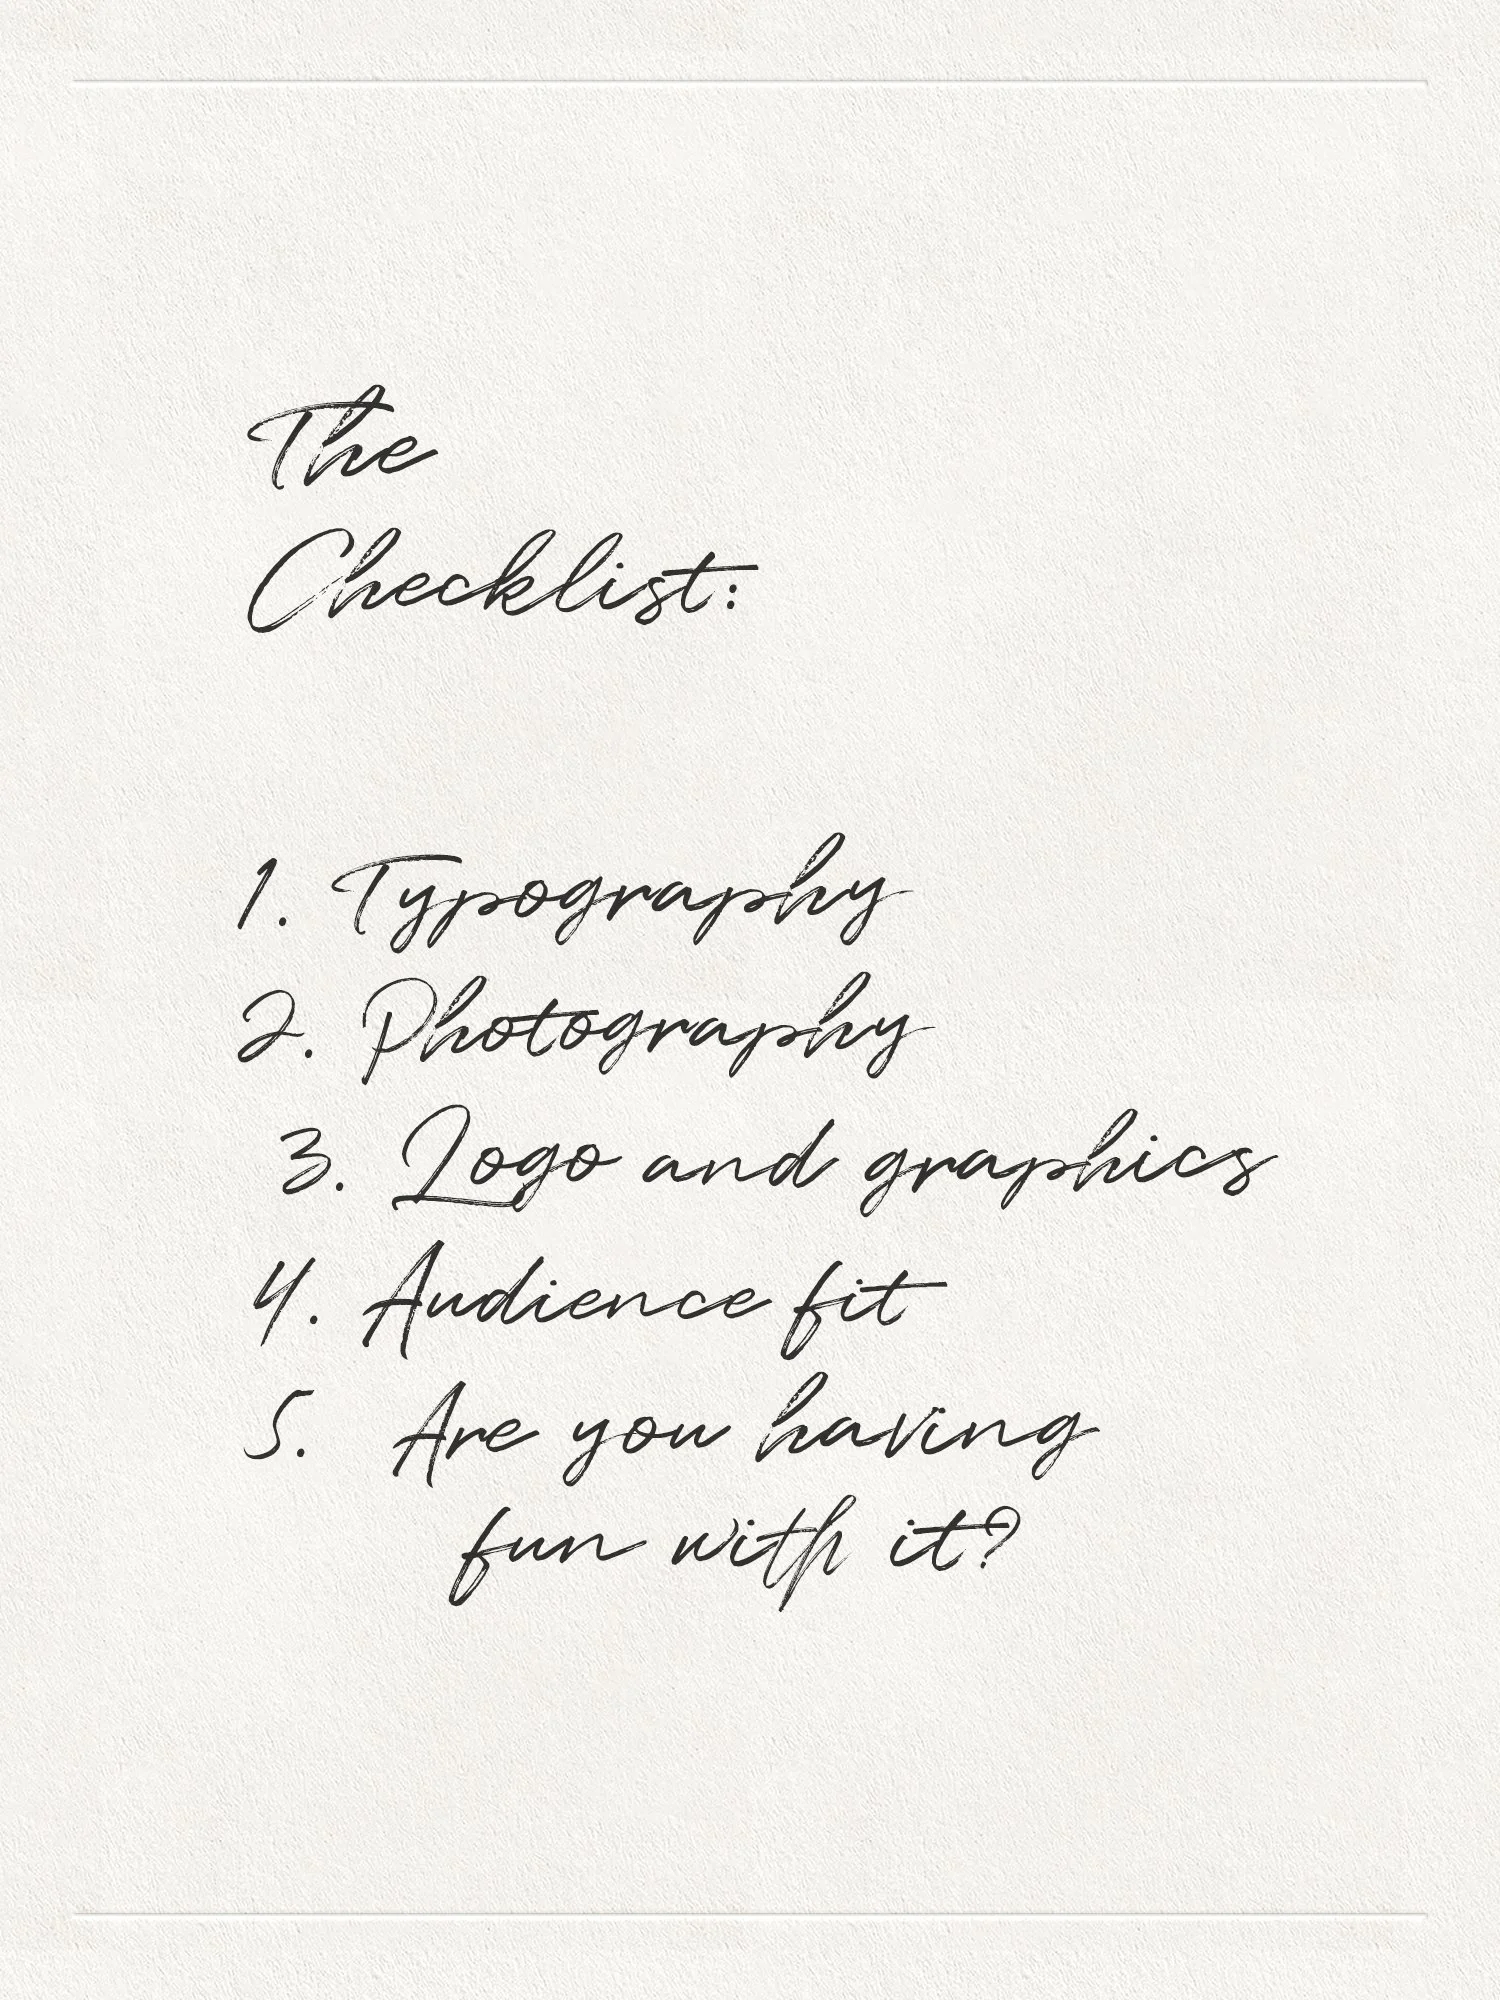 The
Checklist:
1. Typography
2. Photography
3. Logo and graphics
4. Audience fit
5. Are you having
fun with it?